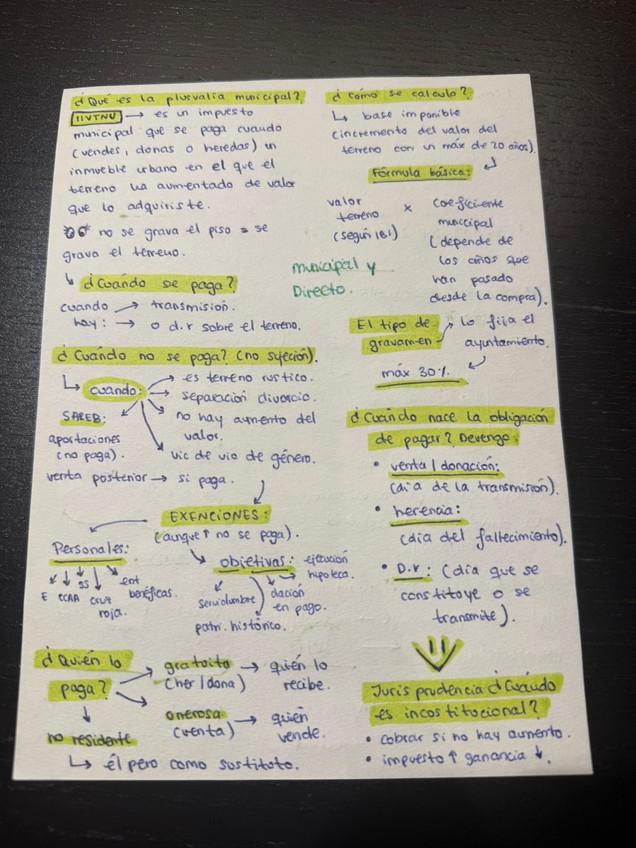 ¿Qué es la plusvalía municipal?
IIVTNU → es un impuesto
municipal que se paga cuando
(vendes, donas o heredas) un
inmueble urbano en el que el
terreno ha aumentado de valor
que lo adquiriste.
no se grava el piso = se
grava el terreno.
↳ ¿Cuándo se paga?
cuando → transmisión.
hay: → o d.r sobre el terreno.
¿Cuándo no se paga? (no sujeción).
↳ cuando: → es terreno rustico.
→ separación divorcio.
→ no hay aumento del
valor.
→ vic de vio de género.
SAREB:
aportaciones
(no paga).
venta posterior → si paga.
EXENCIONES:
(aunque ↑ no se paga).
Personales:
E CCAA SS cruz roja. ent benéficas.
objetivas: ejecución
hipoteca.
servidumbre dación
en pago.
patri. histórico.
¿Quién lo
paga?
→ gratuito → quién lo
(her/dona) recibe.
→ onerosa → quién
(venta) vende.
↓
no residente
↳ él pero como sustituto.
¿cómo se calcula?
↳ base imponible
(incremento del valor del
terreno con un máx de 20 años).
Fórmula básica:
valor
terreno
(según IBI)
×
coeficiente
municipal
(depende de
los años que
han pasado
desde la compra).
municipal y
Directo.
El tipo de
gravamen → lo fija el
ayuntamiento.
máx 30%.
¿Cuándo nace la obligación
de pagar? Devengo
• venta/donación:
(día de la transmisión).
• herencia:
(día del fallecimiento).
• D.r: (día que se
constituye o se
transmite).
Jurisprudencia ¿Cuándo
es incostitucional?
• cobrar si no hay aumento.
• impuesto ↑ ganancia ↓.